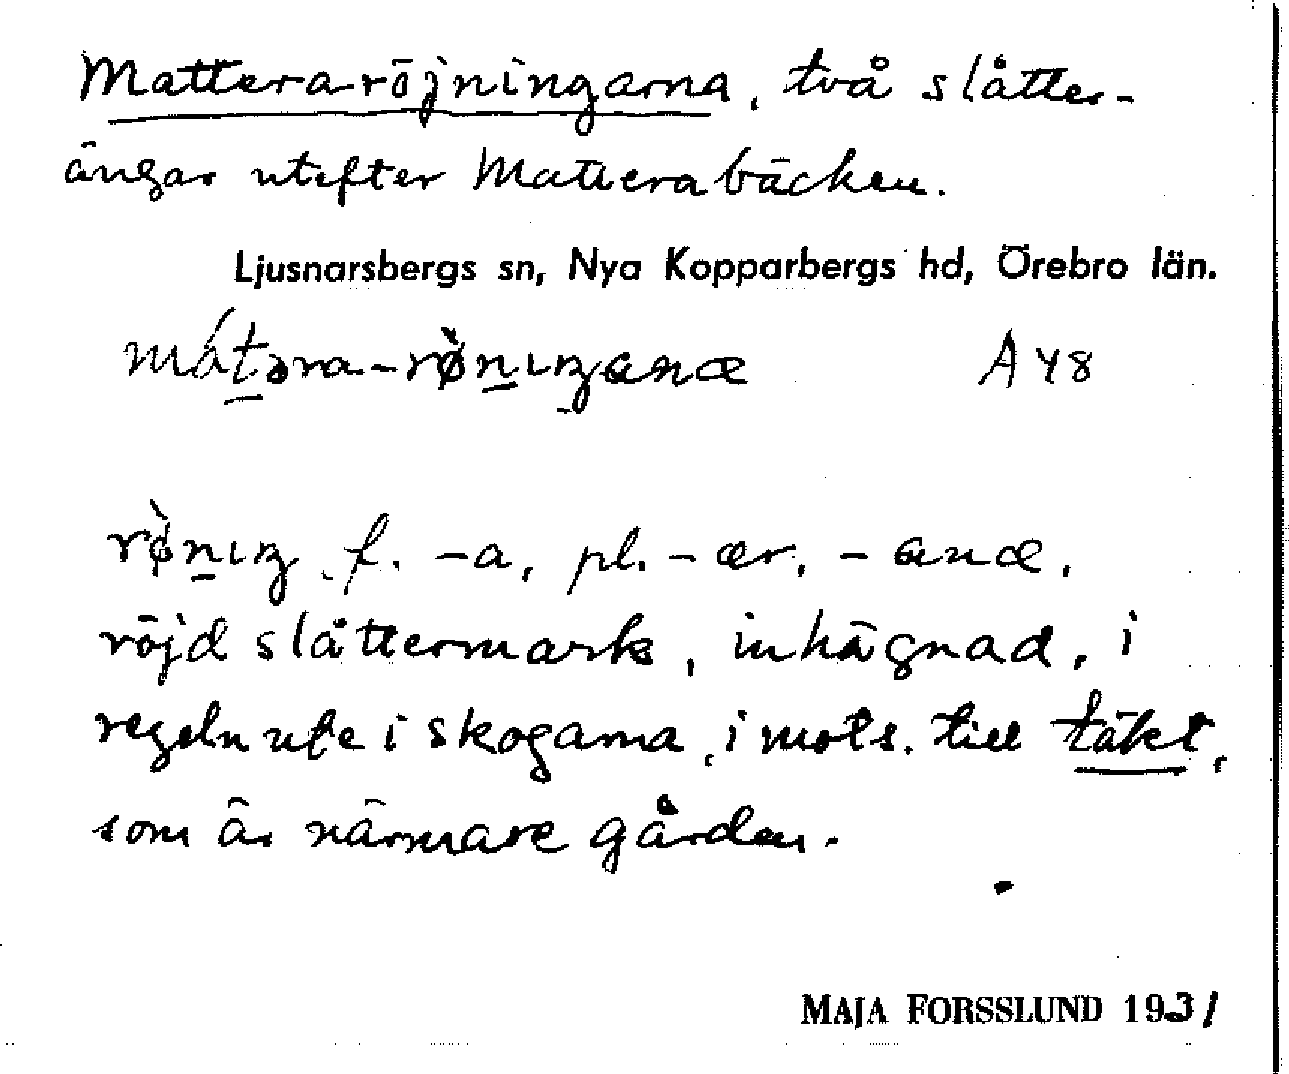 Mattera-röjningarna, två slåtter-
ängar utefter Matterabäcken.
Ljusnarsbergs sn, Nya Kopparbergs hd, Örebro län.
mát̠əra-rø̀n̠ıŋana A 48
rø̀n̠ıŋ f. -a, pl. -ær, -anæ,
röjd slåttermark, inhägnad, i
regeln ute i skogarna, i mots. till täkt,
som är närmare gården.
MAJA FORSSLUND 1931